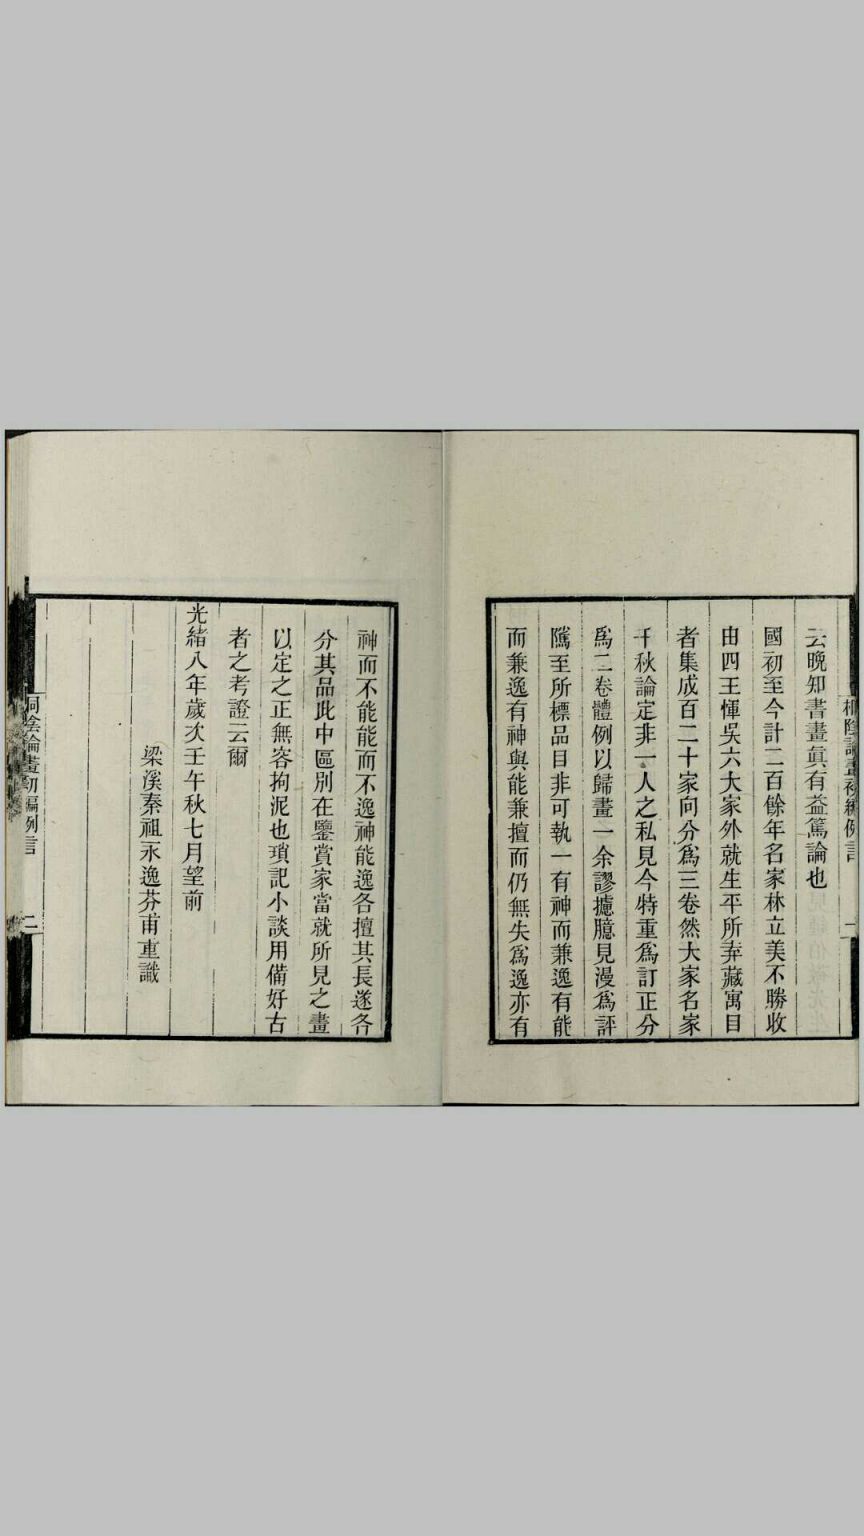 云晚知書畫眞有益篤論也
國初至今計二百餘年名家林立美不勝收
由四王惲吳六大家外就生平所弆藏寓目
者集成百二十家向分爲三卷然大家名家
千秋論定非一人之私見今特重爲訂正分
爲二卷體例以歸畫一余謬攄臆見漫爲評
隲至所標品目非可執一有神而兼逸有能
而兼逸有神與能兼擅而仍無失爲逸亦有
神而不能能而不逸神能逸各擅其長遂各
分其品此中區別在鑒賞家當就所見之畫
以定之正無容拘泥也瑣記小談用備好古
者之考證云爾
光緒八年歲次壬午秋七月望前
梁溪秦祖永逸芬甫重識
桐陰論畫初編例言
二